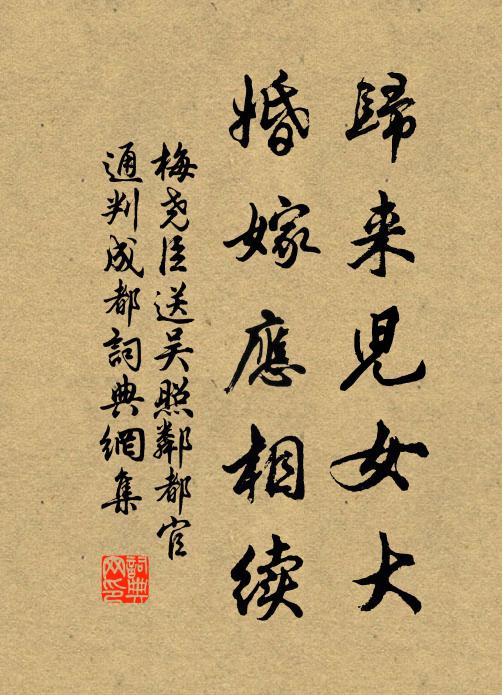 歸来児女大
婚嫁應相續
梅尧臣送吴照鄰都官
通判成都詞典網集
詞典
网印